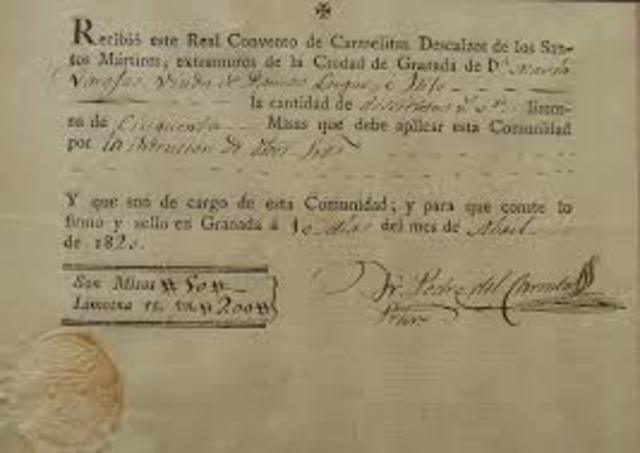 Recibió este Real Convento de Carmelitas Descalzos de los San-
tos Mártires, extramuros de la Ciudad de Granada de Dª María
Viuda de
la cantidad de doscientos rˢ vⁿ limos-
na de Cinquenta Misas que debe aplicar esta Comunidad
por la intencion de
Y que son de cargo de esta Comunidad; y para que conste lo
firmo y sello en Granada á 10 dias del mes de Abril
de 1820.
Son Misas # 50 #
Limosna rs. vn. # 200 #
Fr. Pedro del
Prior